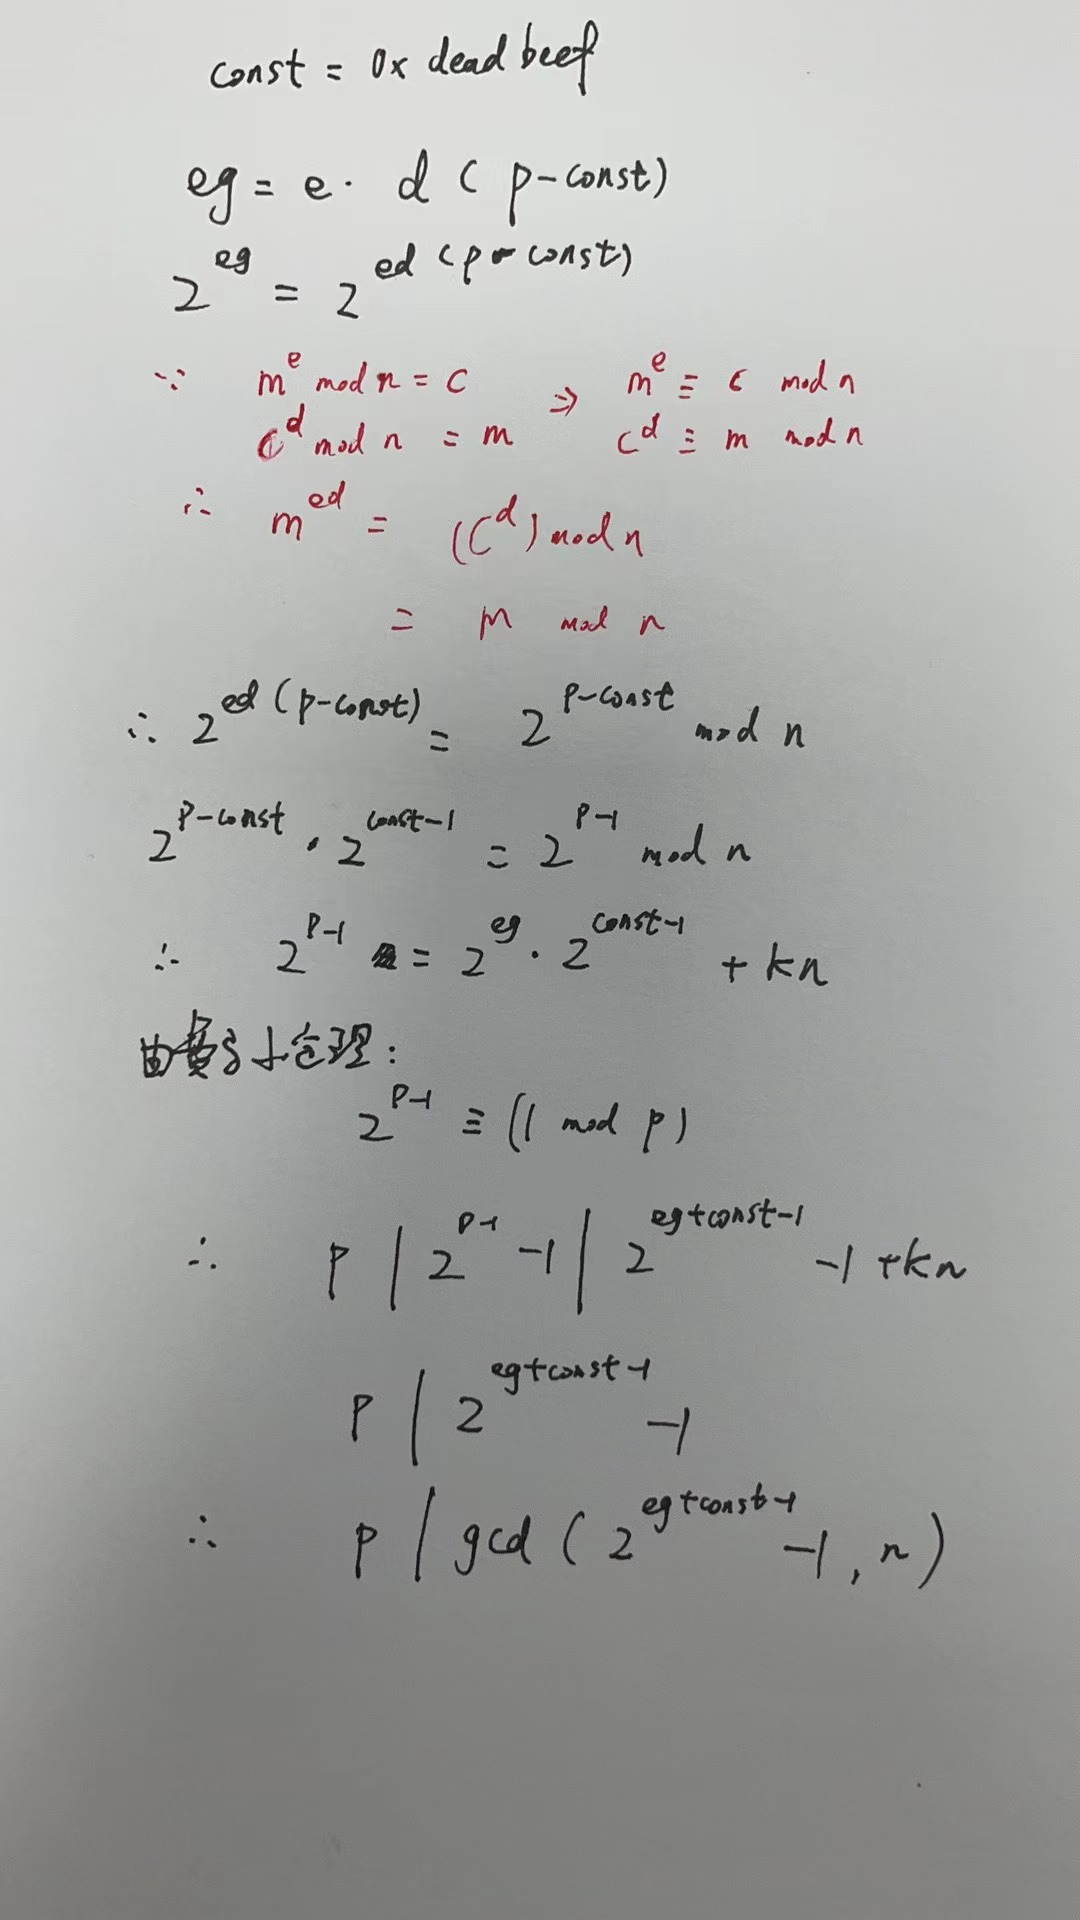 const = 0x deadbeef
eg = e · d ( p - const)
2^eg = 2^ed (p - const)
∵ m^e mod n = c ⇒ m^e ≡ c mod n
c^d mod n = m c^d ≡ m mod n
∴ m^ed = (c^d) mod n
= m mod n
∴ 2^ed (p-const) = 2^p-const mod n
2^p-const · 2^const-1 = 2^p-1 mod n
∴ 2^p-1 = 2^eg · 2^const-1 + kn
由费马小定理:
2^p-1 ≡ (1 mod p)
∴ p | 2^p-1 -1 | 2^eg+const-1 -1 +kn
p | 2^eg+const-1 -1
∴ p | gcd ( 2^eg+const-1 -1, n)